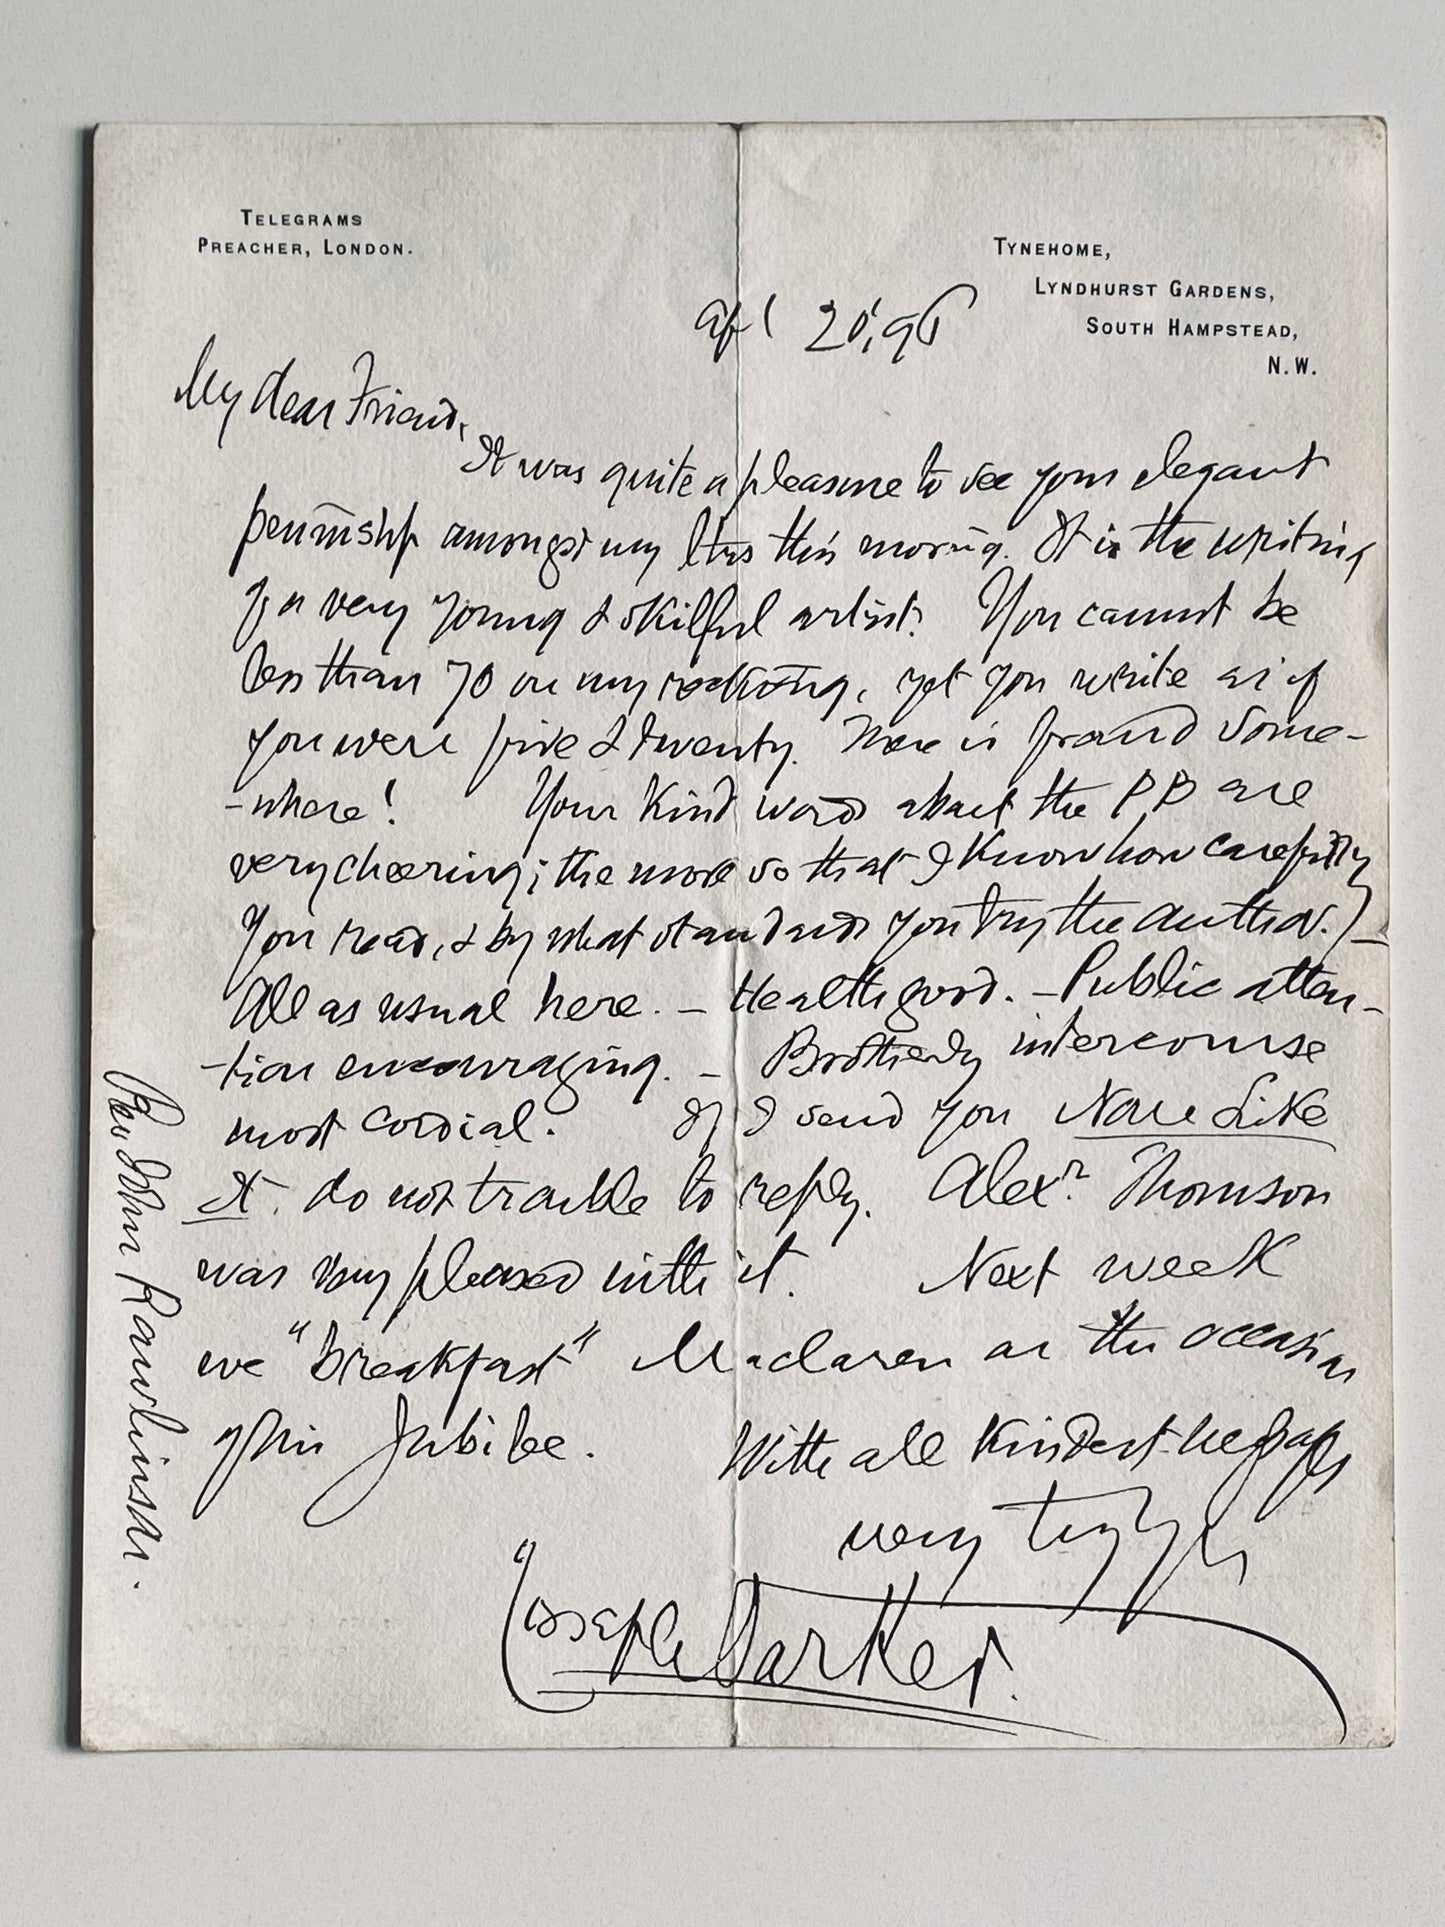 TELEGRAMS
PREACHER, LONDON.
TYNEHOME,
LYNDHURST GARDENS,
SOUTH HAMPSTEAD,
N.W.
Apl 20, 96
My dear Friend,
It was quite a pleasure to see your elegant
penmship amongst my ltrs this morng. It is the writing
of a very young & skilful artist. You cannot be
less than 70 on my reckong, yet you write as if
you were five & twenty. There is fraud some-
-where! Your kind words about the PB are
very cheering; the more so that I know how carefully
you read, & by what standards you try the author. —
All as usual here. — Health good. — Public atten-
-tion encouraging. — Brotherly intercourse
most cordial. If I send you None Like
It. do not trouble to reply. Alexr. Thomson
was very pleased with it. Next week
we "Breakfast" Maclaren on the occasion
of his Jubilee. With all kindest regards
very truly
Joseph Parker.
Rev John Rawlinson.